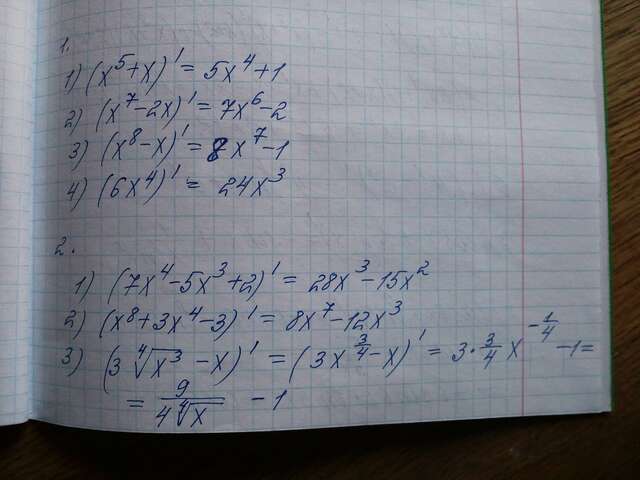 1.
1) (x⁵+x)' = 5x⁴+1
2) (x⁷-2x)' = 7x⁶-2
3) (x⁸-x)' = 8x⁷-1
4) (6x⁴)' = 24x³
2.
1) (7x⁴-5x³+2)' = 28x³-15x²
2) (x⁸+3x⁴-3)' = 8x⁷-12x³
3) (3∜x³ -x)' = (3x^(3/4)-x)' = 3·3/4 x^(-1/4) -1=
= 9/(4∜x) -1